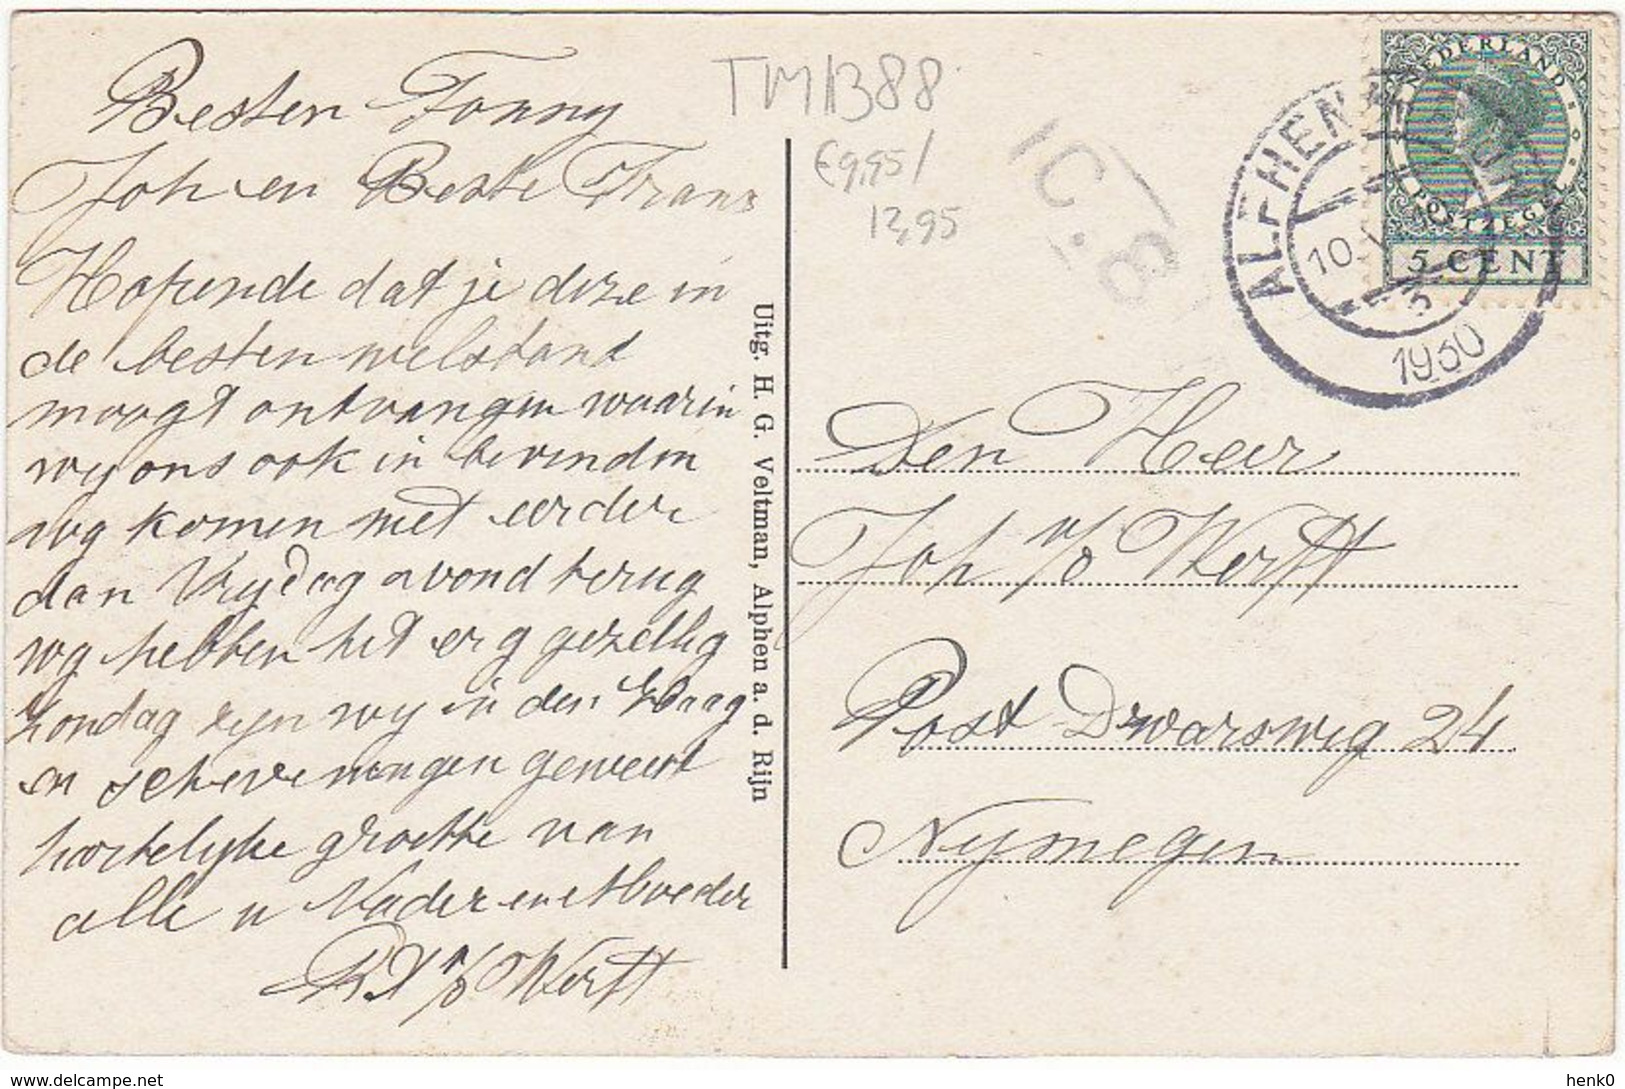 Besten Fonny
Joh en Beste Frans
Hopende dat je deze in
de besten welstand
moogt ontvangen waarin
wy ons ook in bevinden
wy komen niet eerder
dan Vrydag avond terug
wy hebben het erg gezellig
Zondag zyn wy in den Haag
en scheveningen geweest
hartelyke groette van
alle u Vader en Moeder
v/d Werff
Uitg. H. G. Veltman, Alphen a. d. Rijn
TM1388
€9,95/
12,95
C.8
NEDERLAND
POSTZEGEL
5 CENT
ALPHEN
10.
1930
Den Heer
Joh v/d Werff
Post Dwarsweg 24
Nymegen
henk0
delcampe.net